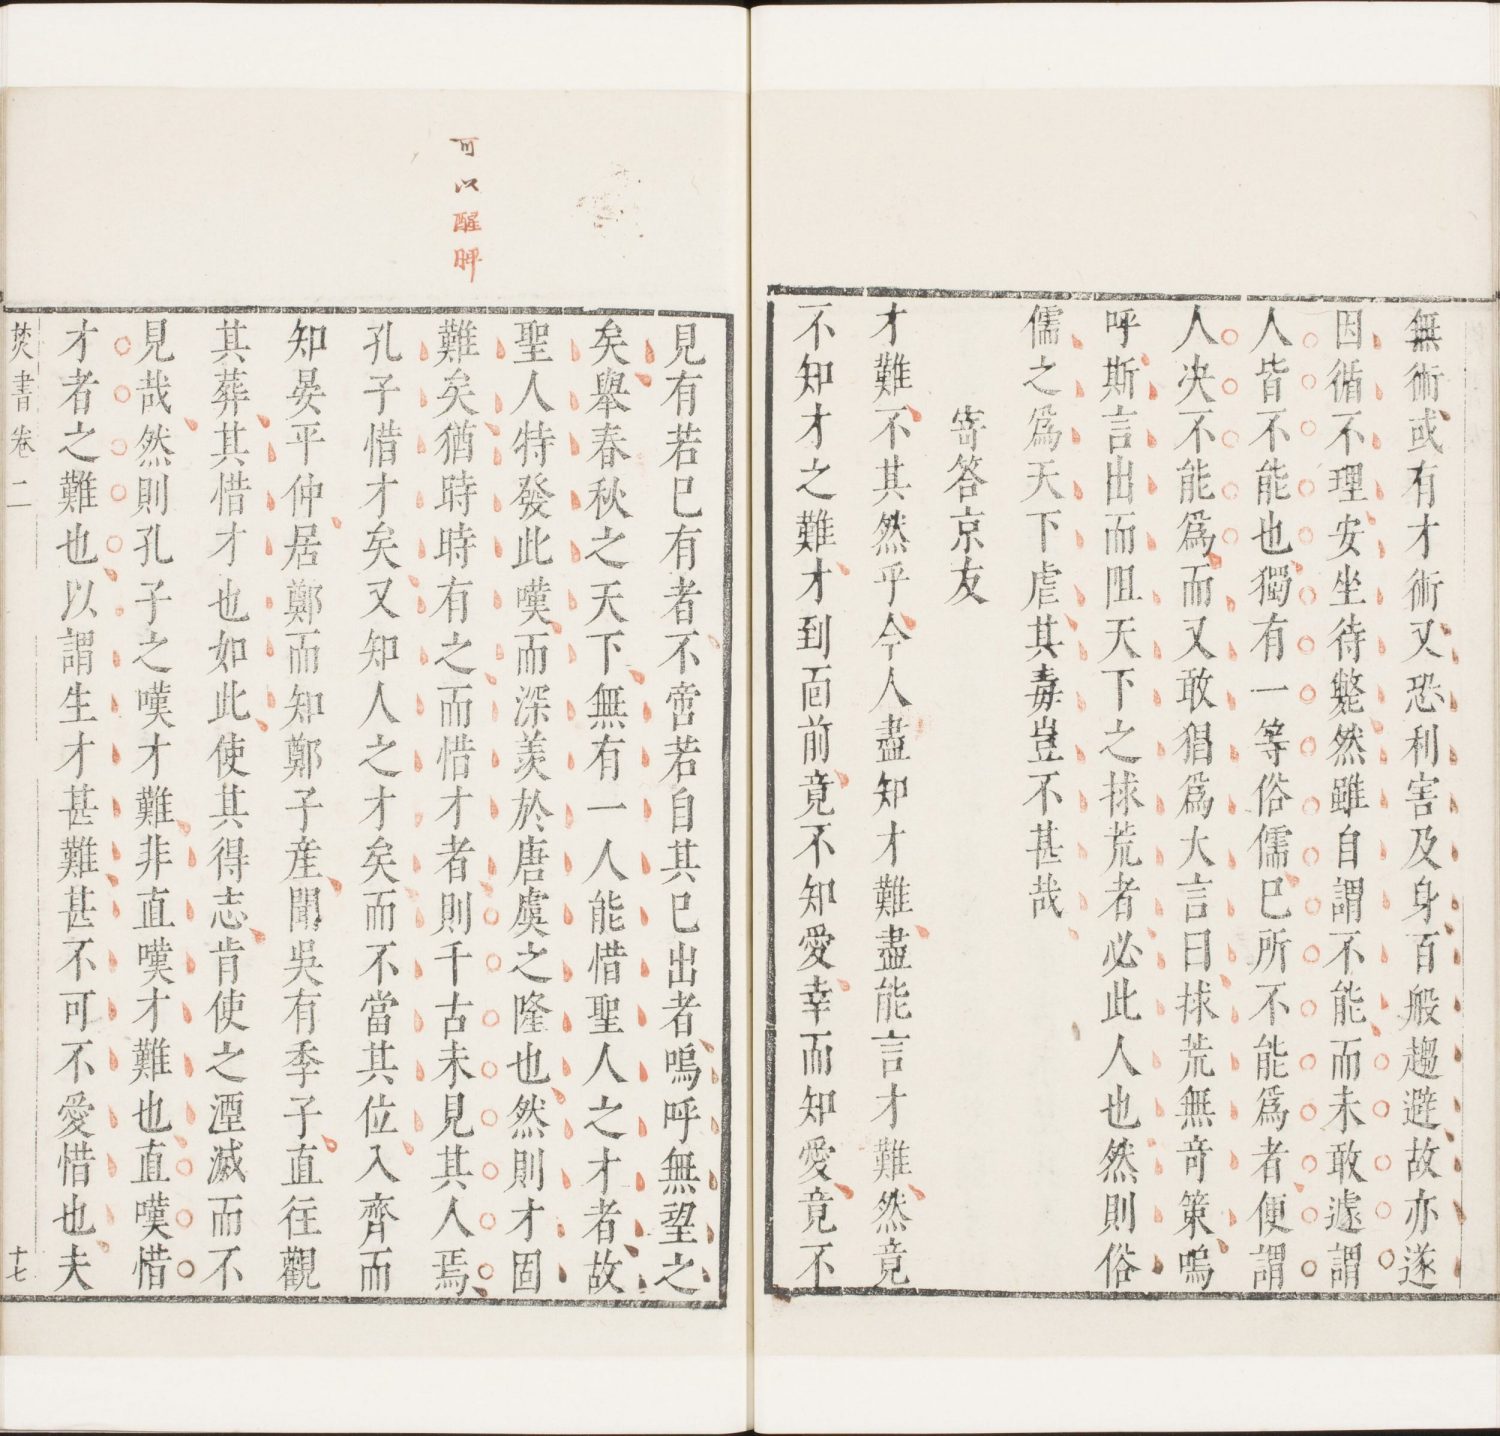 無術或有才術又恐利害及身百般趨避故亦遂
因循不理安坐待斃然雖自謂不能而未敢遽謂
人皆不能也獨有一等俗儒巳所不能爲者便謂
人決不能爲而又敢猖爲大言曰捄荒無奇策嗚
呼斯言出而阻天下之捄荒者必此人也然則俗
儒之爲天下虐其毒豈不甚哉
寄答京友
才難不其然乎今人盡知才難盡能言才難然竟
不知才之難才到面前竟不知愛幸而知愛竟不
可以醒脾
見有若巳有者不啻若自其巳出者嗚呼無望之
矣舉春秋之天下無有一人能惜聖人之才者故
聖人特發此嘆而深羨於唐虞之隆也然則才固
難矣猶時時有之而惜才者則千古未見其人焉
孔子惜才矣又知人之才矣而不當其位入齊而
知晏平仲居鄭而知鄭子產聞吳有季子直往觀
其葬其惜才也如此使其得志肯使之湮滅而不
見哉然則孔子之嘆才難非直嘆才難也直嘆惜
才者之難也以謂生才甚難甚不可不愛惜也夫
焚書卷二
十七